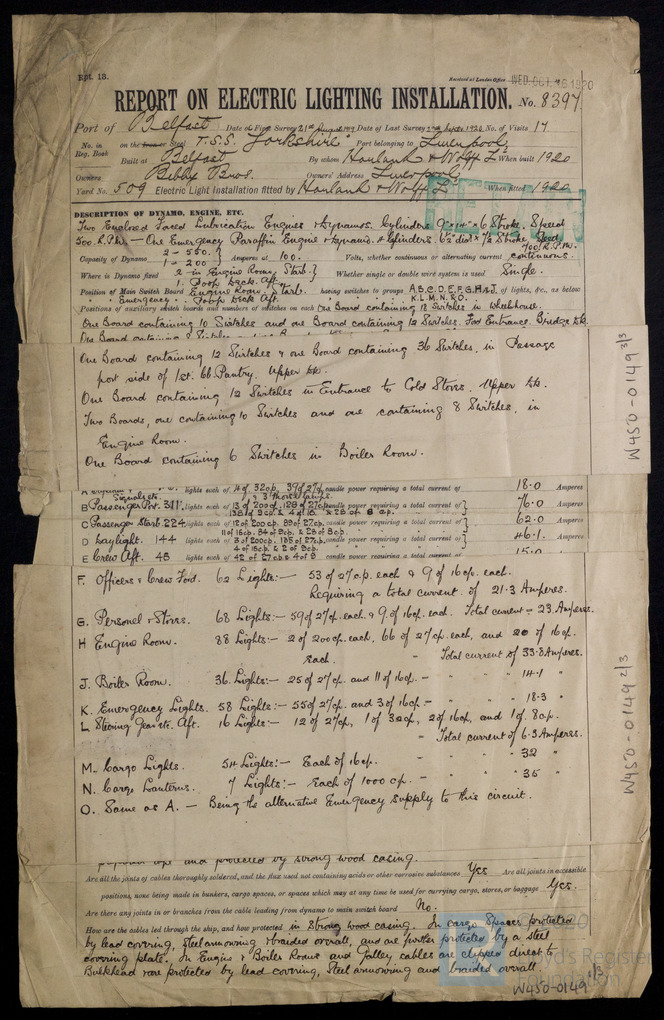 Rpt. 13.
Received at London Office WED. OCT. 1920
REPORT ON ELECTRIC LIGHTING INSTALLATION. No. 8397
Port of Belfast Date of First Survey 21st August 1919 Date of Last Survey 1920 No. of Visits 17
No. in Reg. Book on the Iron or Steel T.S.S. "Yorkshire" Port belonging to Liverpool
Built at Belfast By whom Harland & Wolff Ld When built 1920
Owners Bibby Bros. Owners' Address Liverpool
Yard No. 509 Electric Light Installation fitted by Harland & Wolff Ld When fitted 1920
DESCRIPTION OF DYNAMO, ENGINE, ETC.
Two Enclosed Forced Lubrication Engines & Dynamos. Cylinders 6 Stroke, Speed
500 R.P.M. — One Emergency Paraffin Engine & Dynamo. 4 Cylinders 7½ Stroke, Speed
700 R.P.M.
Capacity of Dynamo 2 - 550. 1 - 200 } Amperes at 100. Volts, whether continuous or alternating current continuous.
Where is Dynamo fixed 2 in Engine Room, Starb. 1. Poop Deck Aft. } Whether single or double wire system is used Single.
Position of Main Switch Board Engine Room, Starb. having switches to groups A,B,C,D,E,F,G,H,&J. of lights, &c., as below
" " Emergency " Poop Deck Aft. " " K.L.M.N.&O.
Positions of auxiliary switch boards and numbers of switches on each One Board containing 18 Switches in Wheelhouse.
One Board containing 10 Switches and one Board containing 12 Switches. Fwd Entrance. Bridge Dk.
One Board containing 12 Switches & one Board containing 36 Switches, in Passage
port side of 1st. Cl. Pantry. Upper Dk.
One Board containing 12 Switches in Entrance to Cold Stores. Upper Dk.
Two Boards, one containing 10 Switches and one containing 8 Switches, in
Engine Room.
One Board containing 6 Switches in Boiler Room.
W450-0149 3/3
lights each of 4 of 32cp. 39 of 27cp. candle power requiring a total current of 18.0 Amperes
Signals etc. & 3 Morse lamps.
B Passenger Port. 311 lights each of 13 of 200cp. 128 of 27cp. candle power requiring a total current of } 76.0 Amperes
C Passenger Starb. 224 lights each of 12 of 200cp. 89 of 27cp. candle power requiring a total current of } 62.0 Amperes
11 of 16cp. 84 of 9cp. & 28 of 8cp.
D Daylight. 144 lights each of 3 of 200cp. 135 of 27cp. candle power requiring a total current of } 46.1 Amperes
4 of 16cp. & 2 of 9cp.
E Crew Aft. 48 lights each of 42 of 27cp & 4 of 9 candle power requiring a total current of 15.0 Amperes
F. Officers & Crew Fwd. 62 Lights:- 53 of 27cp. each & 9 of 16cp. each.
Requiring a total current of 21.3 Amperes.
G. Personel & Stores. 68 Lights:- 59 of 27cp. each & 9 of 16cp. each. Total current = 23. Amperes.
H Engine Room. 88 Lights:- 2 of 200cp. each, 66 of 27cp. each, and 20 of 16cp.
each. - Total current of 33.8 Amperes.
J. Boiler Room. 36 Lights:- 25 of 27cp. and 11 of 16cp. - " " " 14.1 "
K. Emergency Lights. 58 Lights:- 55 of 27cp. and 3 of 16cp. - " " " 18.3 "
L Steering Gear etc. Aft. 16 Lights:- 12 of 27cp, 1 of 32cp, 2 of 16cp, and 1 of 8cp.
Total current of 6.3 Amperes.
M. Cargo Lights. 54 Lights:- Each of 16cp. " " " 32 "
N. Cargo Lanterns. 7 Lights:- Each of 1000 cp. - " " " 35 "
O. Same as A. — Being the alternative Emergency supply to this circuit.
W450-0149 2/3
and protected by strong wood casing.
Are all the joints of cables thoroughly soldered, and the flux used not containing acids or other corrosive substances Yes Are all joints in accessible
positions, none being made in bunkers, cargo spaces, or spaces which may at any time be used for carrying cargo, stores, or baggage Yes.
Are there any joints in or branches from the cable leading from dynamo to main switch board No.
How are the cables led through the ship, and how protected in Strong wood casing. In Cargo Spaces protected
by lead covering, Steel armouring & braided overall, and are further protected by a steel
covering plate. In Engine & Boiler Rooms and Galley cables are clipped direct to
Bulkhead & are protected by lead covering, Steel armouring and braided overall.
© 2020
Lloyd's Register
Foundation
W450-0149 1/3